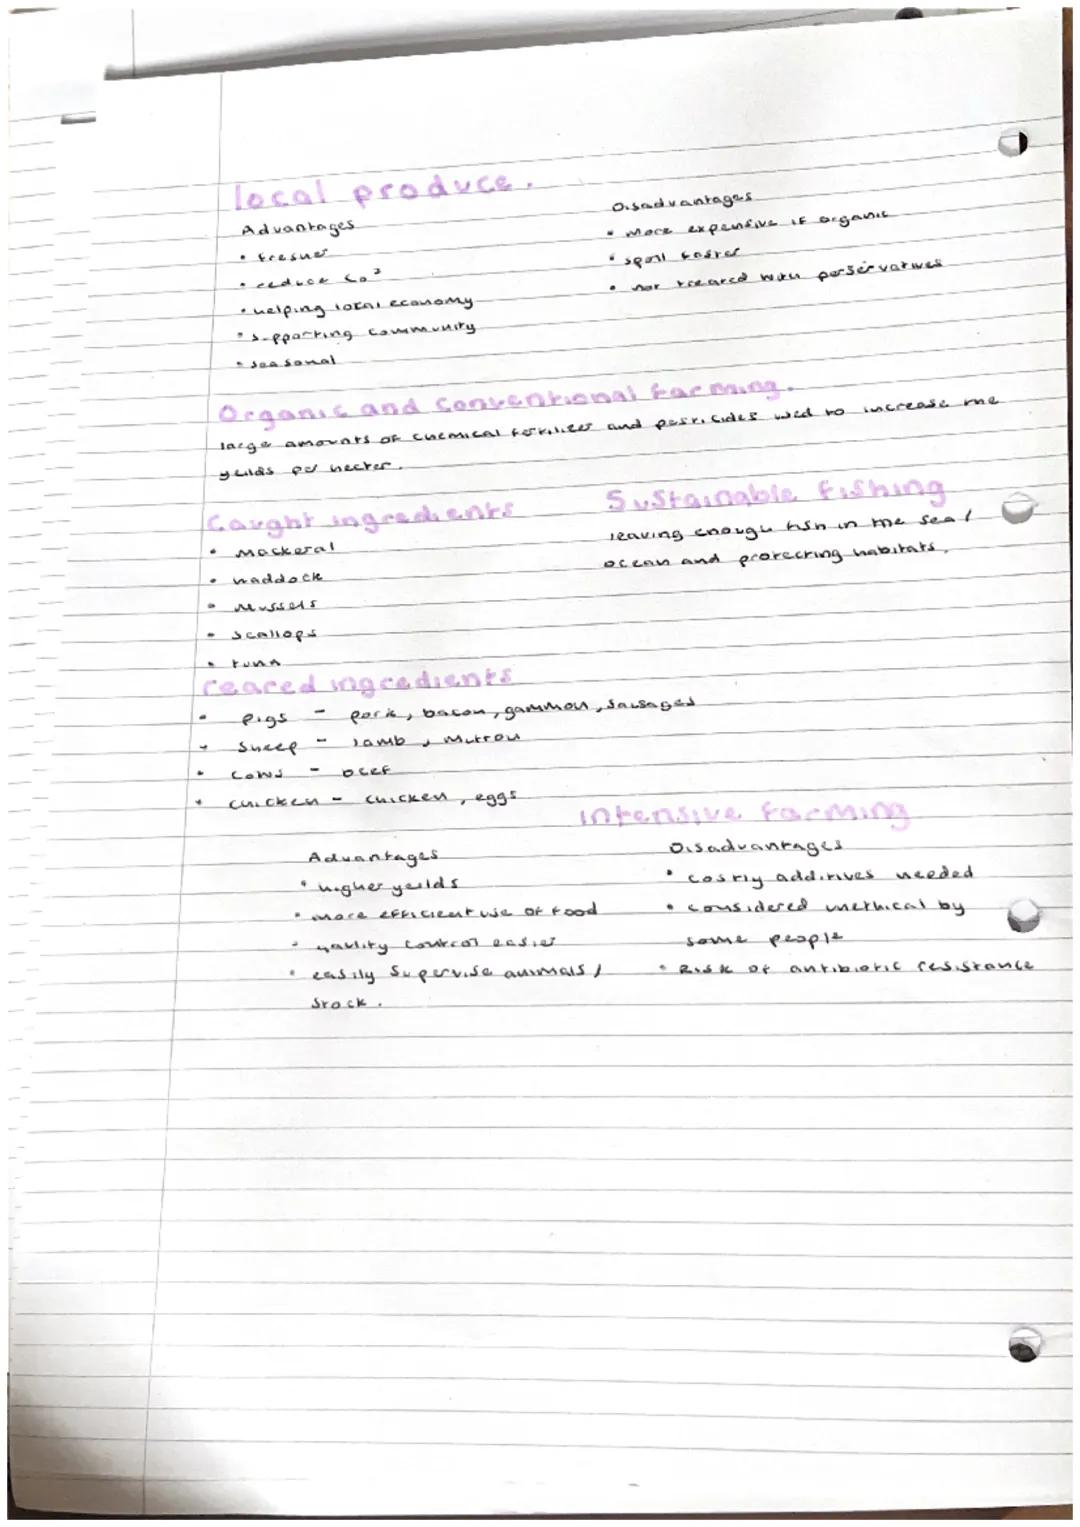 local produce.
Advantages
• fresher
• reduce Co²
• helping local economy
• supporting community
• seasonal
Disadvantages
• more expensive if organic
• spoil faster
• not treared with perservatives
Organic and Conventional farming.
large amounts of chemical fertilizer and pesticides used to increase the
yeilds per hecter.
Caught ingredients
• Mackeral
• haddock
• Mussels
• Scallops
• tuna
Sustainable fishing
leaving enough fish in the sea/
ocean and protecting habitats.
reared ingredients
• Pigs - pork, bacon, gammon, sausages
• Sheep - lamb, mutton
• Cows - beef
• chicken - chicken, eggs
intensive farming
Advantages
• higher yeilds
• more efficient use of food
• quality control easier
• easily supervise animals/
stock.
Disadvantages
• costly additives needed
• considered unethical by
some people
• Risk of antibiotic resistance